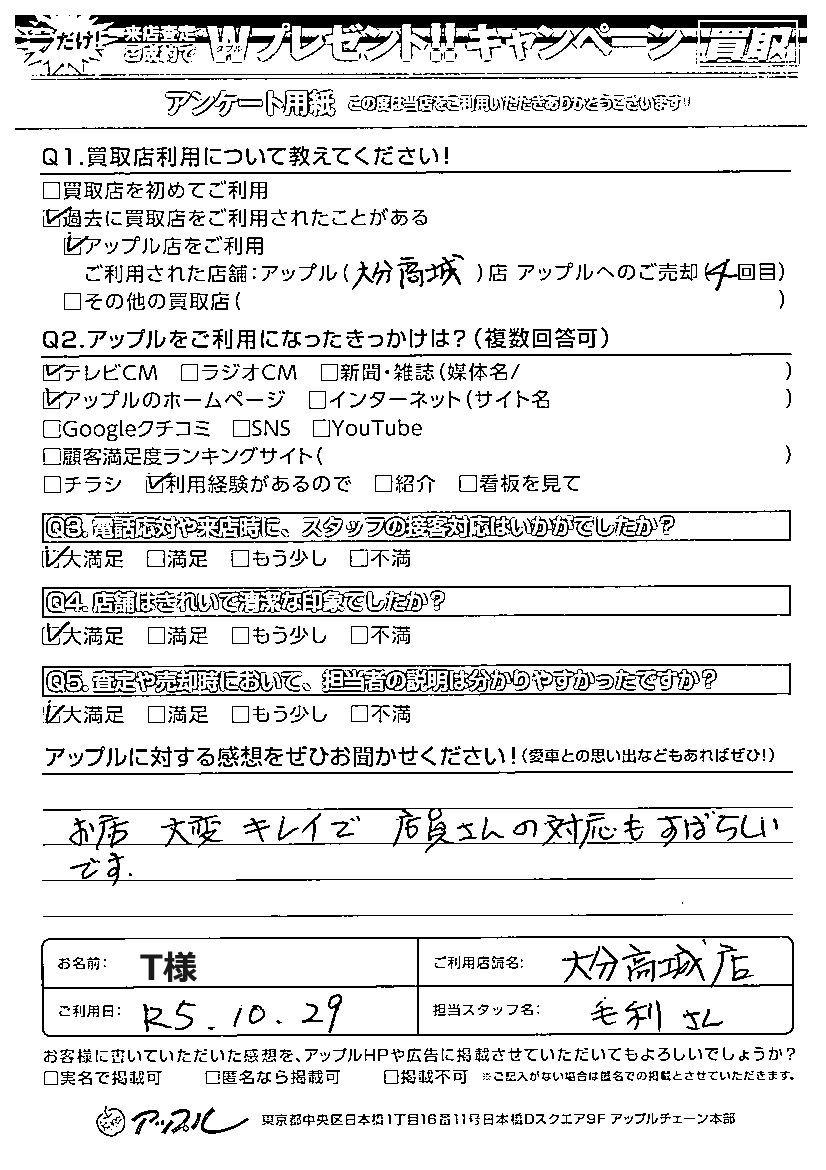 だけ! 来店査定ご成約で Wプレゼント!! キャンペーン 買取
アンケート用紙 この度は当店をご利用いただきありがとうございます!!
Q1.買取店利用について教えてください!
□買取店を初めてご利用
☑過去に買取店をご利用されたことがある
☑アップル店をご利用
ご利用された店舗:アップル(大分高城)店 アップルへのご売却(4回目)
□その他の買取店( )
Q2.アップルをご利用になったきっかけは?(複数回答可)
☑テレビCM □ラジオCM □新聞・雑誌(媒体名/ )
☑アップルのホームページ □インターネット(サイト名 )
□Googleクチコミ □SNS □YouTube
□顧客満足度ランキングサイト( )
□チラシ ☑利用経験があるので □紹介 □看板を見て
Q3.電話応対や来店時に、スタッフの接客対応はいかがでしたか?
☑大満足 □満足 □もう少し □不満
Q4.店舗はきれいで清潔な印象でしたか?
☑大満足 □満足 □もう少し □不満
Q5.査定や売却時において、担当者の説明は分かりやすかったですか?
☑大満足 □満足 □もう少し □不満
アップルに対する感想をぜひお聞かせください!(愛車との思い出などもあればぜひ!)
お店 大変 キレイで 店員さんの対応もすばらしい
です.
お名前: T様 ご利用店舗名: 大分高城店
ご利用日: R5.10.29 担当スタッフ名: 毛利さん
お客様に書いていただいた感想を、アップルHPや広告に掲載させていただいてもよろしいでしょうか?
□実名で掲載可 □匿名なら掲載可 □掲載不可 ※ご記入がない場合は匿名での掲載とさせていただきます。
アップル 東京都中央区日本橋1丁目16番11号日本橋Dスクエア9F アップルチェーン本部